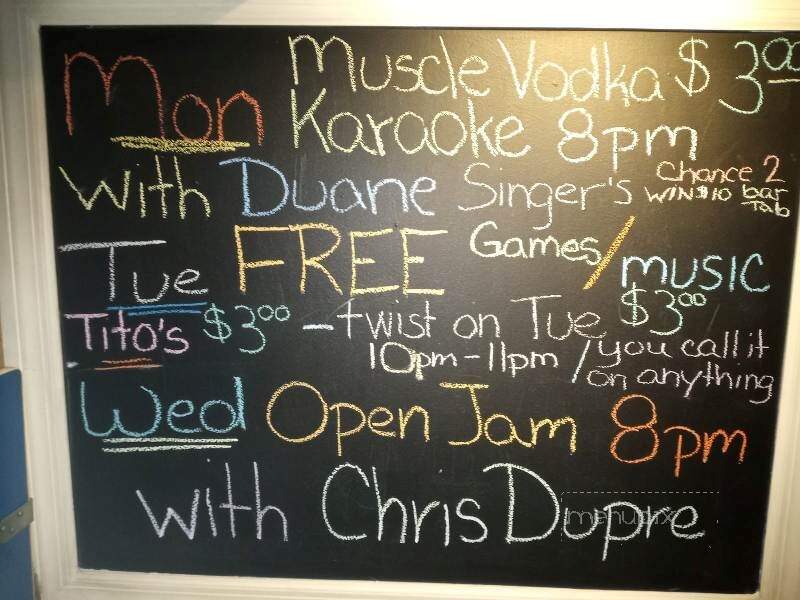 Mon Muscle Vodka $3.00
Karaoke 8pm
With Duane Singer's Chance 2
WIN $10 bar
Tab
Tue FREE Games/music
Tito's $3.00 - twist on Tue $3.00
10pm-11pm / you call it
on anything
Wed Open Jam 8pm
with Chris Dupre
menupix